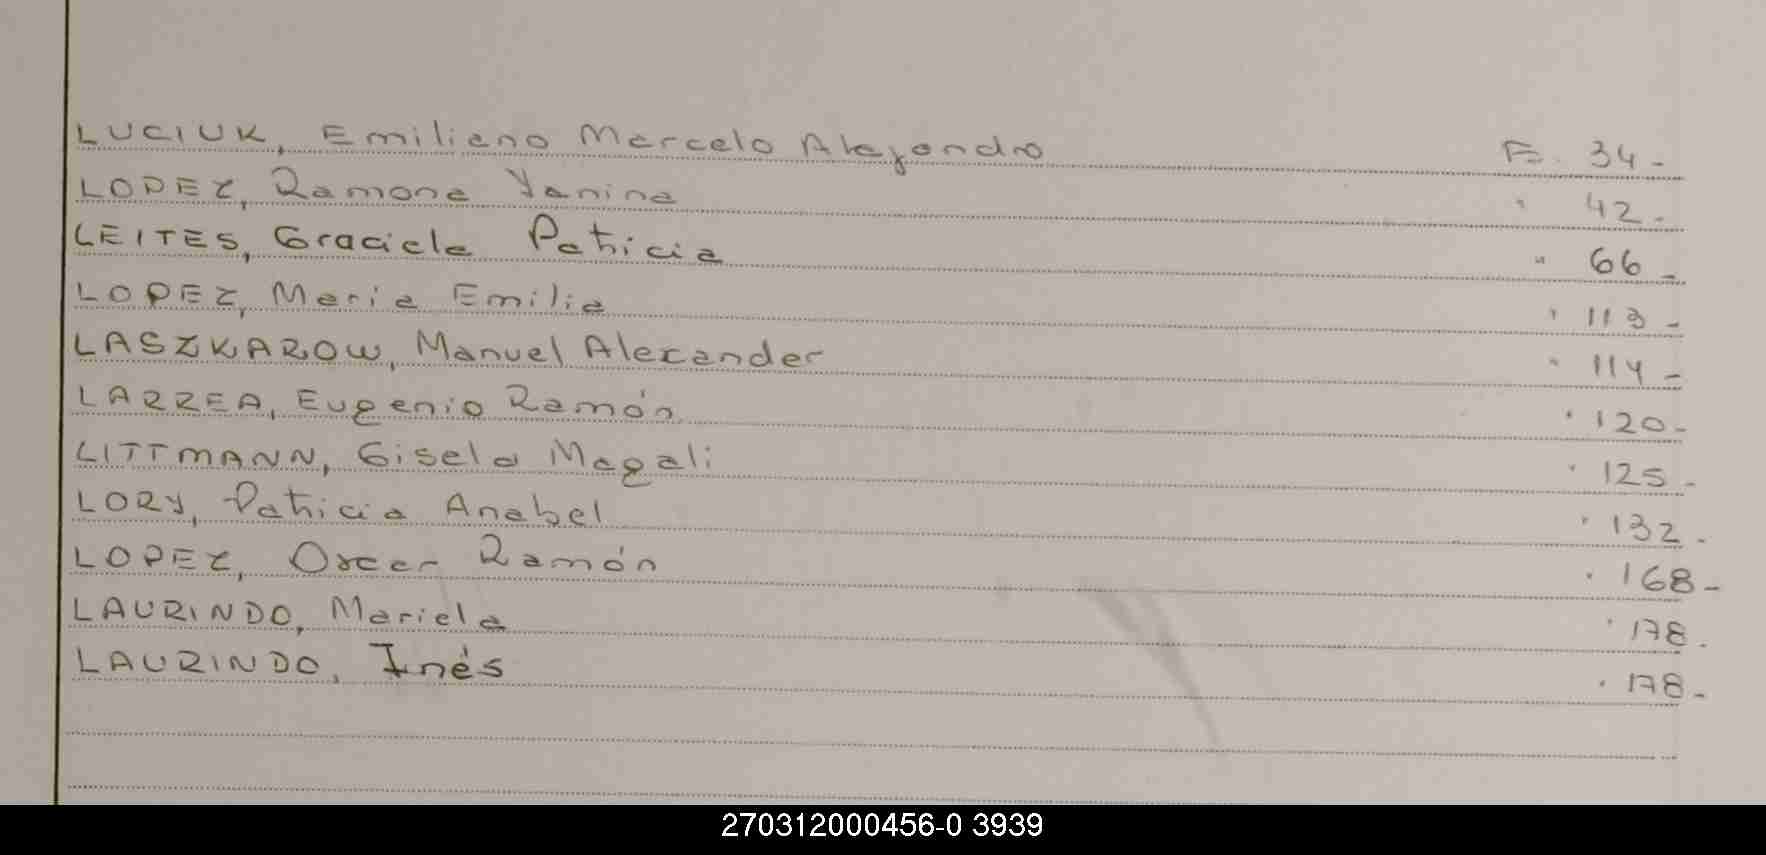 LUCIUK, Emiliano Marcelo Alejandro F. 34-
LOPEZ, Ramona Yanina " 42-
LEITES, Graciela Patricia " 66-
LOPEZ, Maria Emilia " 113-
LASZKAROW, Manuel Alexander " 114-
LARREA, Eugenio Ramón " 120-
LITTMANN, Gisela Magali " 125-
LORY, Patricia Anabel " 132-
LOPEZ, Oscar Ramón " 168-
LAURINDO, Mariela " 178-
LAURINDO, Inés " 178-
270312000456-0 3939